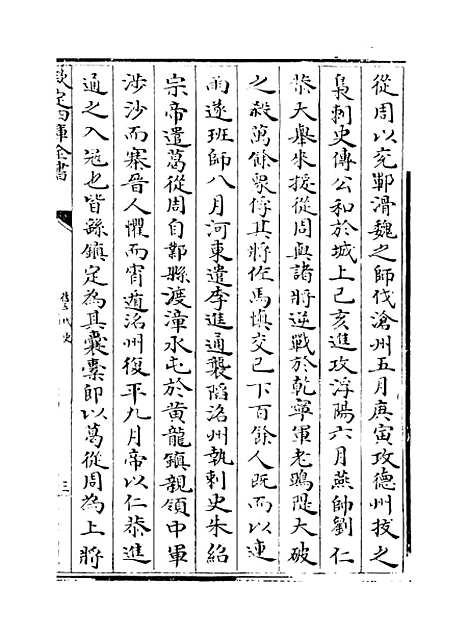 從周以兖鄆滑魏之師伐滄州五月庚寅攻德州拔之
梟刺史傅公和於城上己亥進攻浮陽六月燕帥劉仁
恭大舉來援從周與諸將逆戰於乾寧軍老鵶隄大破
之殺萬餘衆俘其將佐馬慎交已下百餘人既而以連
雨遂班師八月河東遣李進通襲䧟洺州執刺史朱紹
宗帝遣葛從周自鄴縣渡漳水屯於黄龍鎮親領中軍
涉沙而寨晉人懼而宵遁洺州復平九月帝以仁恭進
通之入冦也皆繇鎮定為其囊橐即以葛從周為上將
欽定四庫全書
舊五代史
三